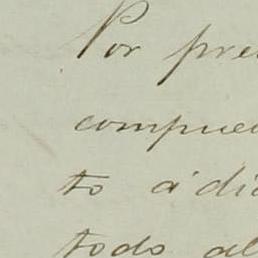 Por pre
compue
to á di
todo al